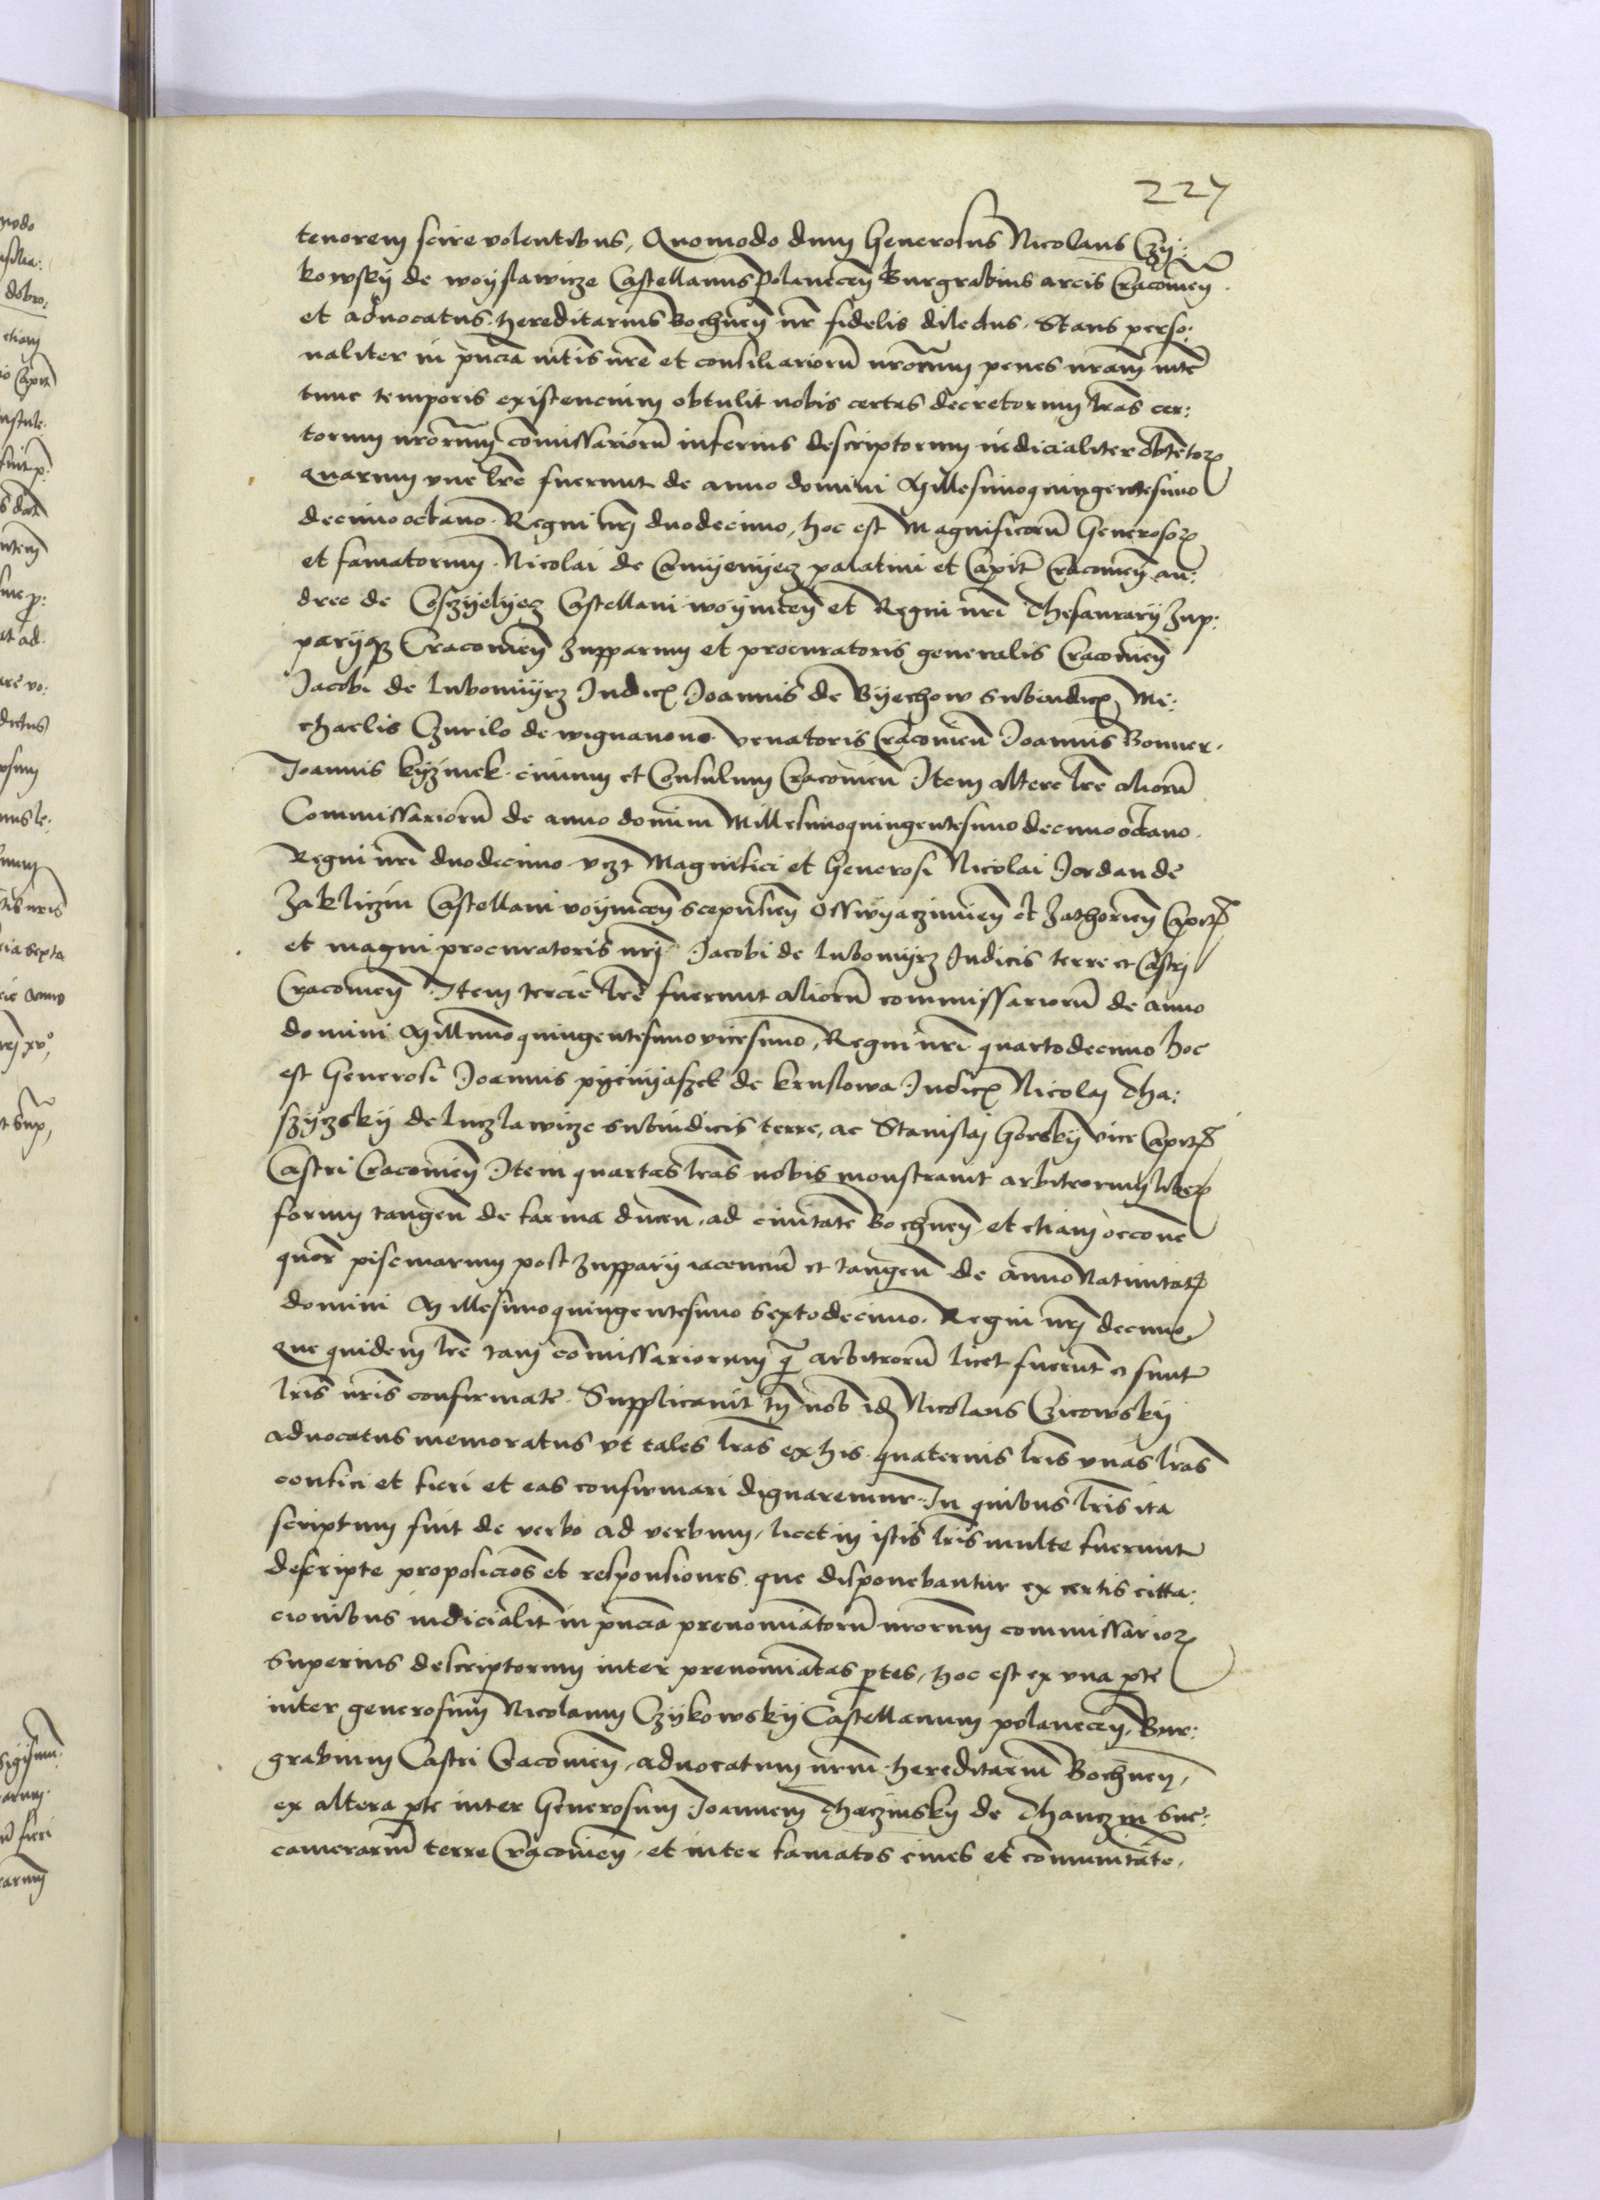 227
tenorem scire volentibus, Quomodo dum Generosus Nicolaus Czy:
kowsky de woyslawicze Castellanus Polanecen Burgrabius arcis Cracovien
et advocatus hereditarius Bochnen nr fidelis dilectus. Stans perso:
naliter in pncia mtis nre et consiliariorū nrorum penes nram mte
tunc temporis existencium obtulit nobis certas decretorum lras cer:
torum nrorum comissariorū inferius descriptorum iudicialiter obtetoꝝ
quarum vne lre fuerunt de anno domini Millesimoquingentesimo
decimooctavo. Regni nri duodecimo, hoc est Magnificorū Generosoꝝ
et famatorum. Nicolai de Camyenyecz palatini et Capit Cracovien. an:
dree de Coszyelyecz Castellani woynicen et Regni nri Thesaurarij Zup:
parijqȝ Cracovien zupparum et procuratoris generalis Cracovien
Jacobi de lubomyrz Judicȝ Joannis de Byechow subiudicȝ, Mi:
chaelis Czurilo de wignanow venatoris Cracovien Joannis Bonner.
Joannis kyzmek. civium et Consulum Cracovien Item altere lre aliorū
Commissariorū de anno domini Millesimoquingentesimo decimooctavo.
Regni nri duodecimo vzt Magnifici et Generosi Nicolai Jordan de
Zakliczin Castellani voynicen scepusien Osswyaczimien et Zathorien Capit
et magni procuratoris nri Jacobi de lubomyrz Judicis terre et Castri
Cracovien Item tercie lre fuerunt aliorū commissariorū de anno
domini Millmoquingentesimovicesimo, Regni nri quartodecimo hoc
est Generosi Joannis pyenyaszek de kruslowa Judicȝ Nicolaj Tha:
szyczsky de luczlawicze subiudicis terre, ac Stanislaj Gorsky vice Capit
Castri Cracovien Item quartas lras nobis monstravit arbitrorum
formm tangen de tarma ducen ad civitate Bochnen et etiam occone
quor piscinarum post zuppary iacenciū et tangen de anno Nativitat
domini Millesimoquingentesimo septodecimo. Regni nri decimo,
que quidem lre tam comissariorum q̄ arbitrorū licet fuerunt et sunt
lris nris confirmate. Supplicavit tn nob idē Nicolaus Czicowsky
advocatus memoratus vt tales lras ex his quaternis lris vnas lras
confici et fieri et eas confirmari dignaremur. In quibus lris ita
scriptum fuit de verbo ad verbum, licet in istis lris multe fuerunt
descripte proposicios et responsiones que disponebantur ex certis citta:
cionibus iudicialit in pncia prenoiatorū nrorum commissarioꝝ
superius descriptorum inter prenoiatas ptes, hoc est ex vna pte
inter generosum Nicolaum Czykowsky Castellanum polanecen, Bur:
grabium Castri Cracovien, advocatum nrm hereditariū Bochnen,
ex altera pte inter Generosum Joannem Thaczinsky de Thanczin suc:
camerariū terre Cracovien, et inter famatos cives et comunitate,